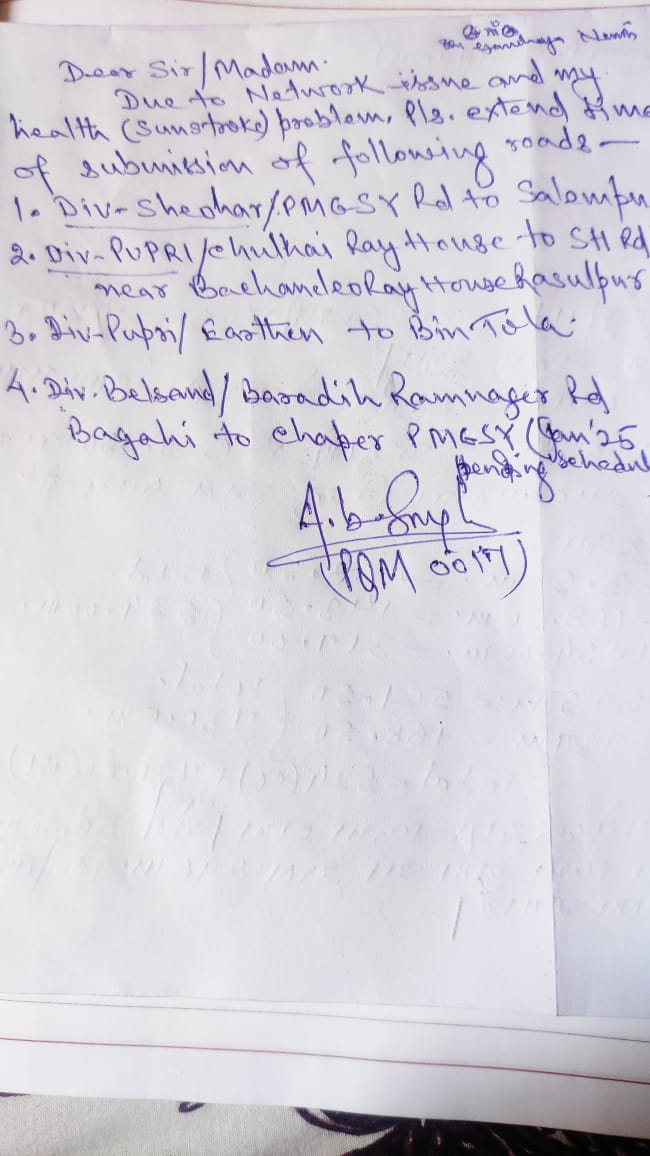 Dear Sir/Madam.
Due to Network issue and my
health (sunstroke) problem, Pls. extend time
of submission of following roads —
1. Div- Sheohar/PMGSY Rd to Salempu
2. Div- PUPRI/Chulhai Ray House to SH Rd
near Bachandeo Ray House Rasulpur
3. Div-Pupri/ Earthen to Bin Tola.
4. Div. Belsand/ Baradih Ramnager Rd
Bagahi to Chaper PMGSY (Jan'25
pending schedul
A.k. Singh
(PQM 0017)